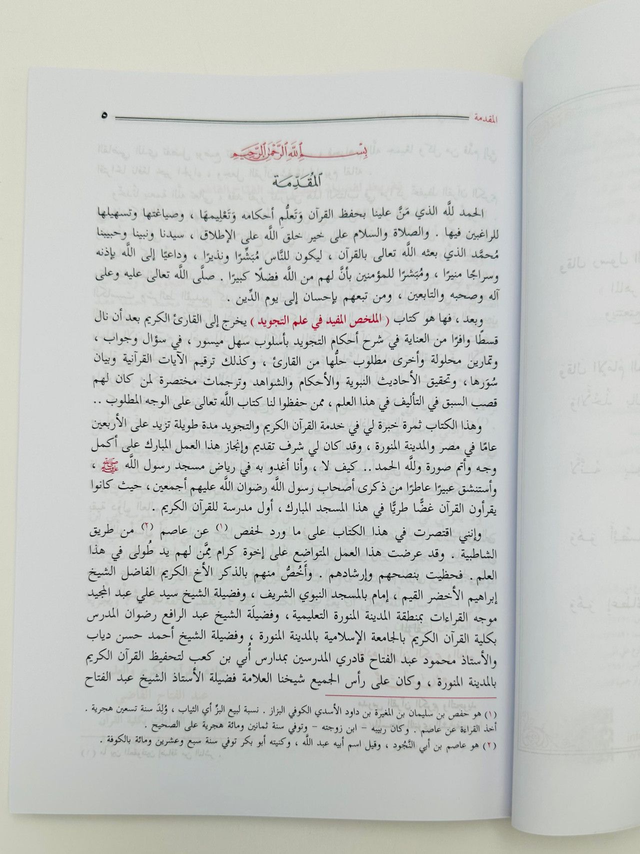 المقدمة
٥
بسم الله الرحمن الرحيم
المُقَدِّمَة
الحمد للَّه الذي مَنَّ علينا بحفظ القرآن وَتَعلُّمِ أحكامه وَتَعْلِيمهَا ، وصياغتها وتسهيلها
للراغبين فيها . والصلاة والسلام على خير خلق اللَّه على الإطلاق ، سيدنا ونبينا وحبيبنا
مُحمَّد الذي بعثه اللَّه تعالى بالقرآن ، ليكون للنَّاس مُبَشِّرًا ونذيرًا ، وداعيًا إلى اللَّه بإذنه
وسراجًا منيرًا ، ومُبَشرًا للمؤمنين بأنَّ لهم من اللَّه فضلًا كبيرًا . صلَّى اللَّه تعالى عليه وعلى
آله وصحبه والتابعين ، ومن تبعهم بإحسان إلى يوم الدِّين .
وبعد ، فها هو كتاب ( الملخص المفيد في علم التجويد ) يخرج إلى القارئ الكريم بعد أن نال
قسطًا وافرًا من العناية في شرح أحكام التجويد بأسلوب سهل ميسور ، في سؤال وجواب ،
وتمارين محلولة وأخرى مطلوب حلُّها من القارئ ، وكذلك ترقيم الآيات القرآنية وبيان
سُوَرها ، وتحقيق الأحاديث النبوية والأحكام والشواهد وترجمات مختصرة لمن كان لهم
قصب السبق في التأليف في هذا العلم ، ممن حفظوا لنا كتاب اللَّه تعالى على الوجه المطلوب ..
وهذا الكتاب ثمرة خبرة لي في خدمة القرآن الكريم والتجويد مدة طويلة تزيد على الأربعين
عامًا في مصر والمدينة المنورة ، وقد كان لي شرف تقديم وإنجاز هذا العمل المبارك على أكمل
وجه وأتم صورة وللَّه الحمد.. كيف لا ، وأنا أغدو به في رياض مسجد رسول اللَّه ﷺ ،
وأستنشق عبيرًا عاطرًا من ذكرى أصحاب رسول اللَّه رضوان اللَّه عليهم أجمعين ، حيث كانوا
يقرأون القرآن غضًّا طريًّا في هذا المسجد المبارك ، أول مدرسة للقرآن الكريم .
وإنني اقتصرت في هذا الكتاب على ما ورد لحفص (١) عن عاصم (٢) من طريق
الشاطبية . وقد عرضت هذا العمل المتواضع على إخوة كرام مِمَّن لهم يد طُولى في هذا
العلم . فحظيت بنصحهم وإرشادهم . وأَخُصُّ منهم بالذكر الأخ الكريم الفاضل الشيخ
إبراهيم الأخضر القيم ، إمام بالمسجد النبوي الشريف ، وفضيلة الشيخ سيد علي عبد المجيد
موجه القراءات بمنطقة المدينة المنورة التعليمية ، وفضيلَة الشيخ عبد الرافع رضوان المدرس
بكلية القرآن الكريم بالجامعة الإسلامية بالمدينة المنورة ، وفضيلة الشيخ أحمد حسن دياب
والأستاذ محمود عبد الفتاح قادري المدرسين بمدارس أُبي بن كعب لتحفيظ القرآن الكريم
بالمدينة المنورة ، وكان على رأس الجميع شيخنا العلامة فضيلة الأستاذ الشيخ عبد الفتاح
(١) هو حفص بن سليمان بن المغيرة بن داود الأسدي الكوفي البزاز . نسبة لبيع البزِّ أي الثياب ، وُلِدَ سنة تسعين هجرية .
أخذ القراءة عن عاصم . وكان ربيبه - ابن زوجته - وتوفي سنة ثمانين ومائة هجرية على الصحيح .
(٢) هو عاصم بن أبي النَّجُود ، وقيل اسم أبيه عبد اللَّه ، وكنيته أبو بكر توفي سنة سبع وعشرين ومائة بالكوفة .